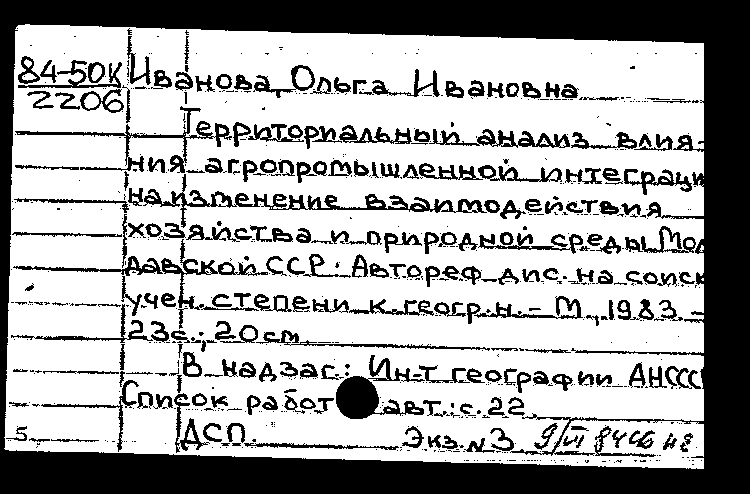 84-50К Иванова, Ольга Ивановна
2206
Территориальный анализ влия-
ния агропромышленной интеграци
на изменение взаимодействия
хозяйства и природной среды Мол
давской ССР: Автореф. дис. на соиск
учен. степени к. геогр. н. – М., 1983. –
23с.; 20см
В надзаг.: Ин-т географии АНССС
Список работ авт.: с. 22.
5 ДСП. Экз. №3 9/VI 84